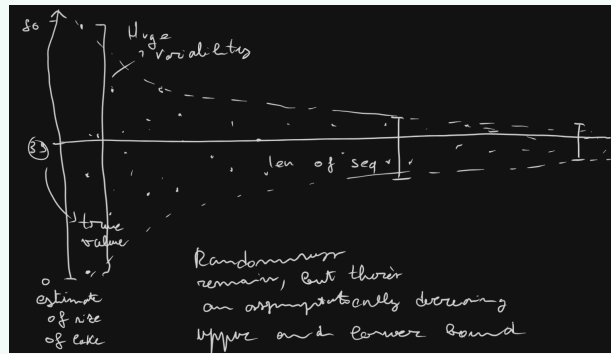 80
Huge
variability
33
len of seq
true
value
0
estimate
of size
of lake
Randomness
remain, but there's
an asymptotically decreasing
upper and lower bound